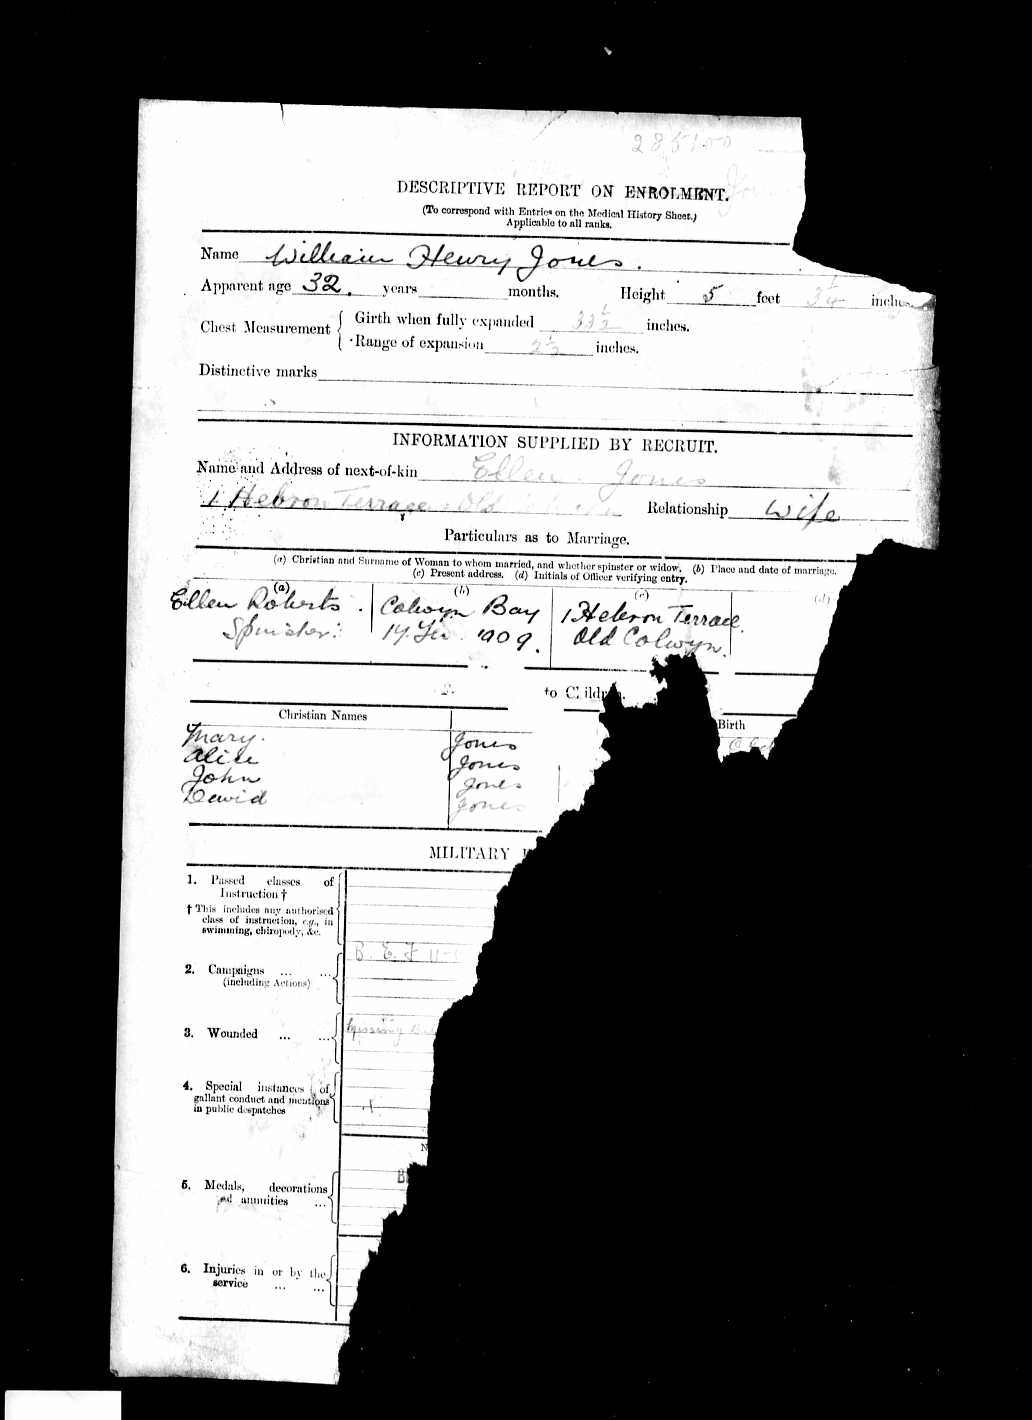 285100
DESCRIPTIVE REPORT ON ENROLMENT.
(To correspond with Entries on the Medical History Sheet.)
Applicable to all ranks.
Name William Henry Jones.
Apparent age 32. years months. Height 5 feet 3¼ inches.
Chest Measurement { Girth when fully expanded 33½ inches.
Range of expansion 2½ inches.
Distinctive marks
INFORMATION SUPPLIED BY RECRUIT.
Name and Address of next-of-kin Ellen Jones
1 Hebron Terrace Old Relationship Wife
Particulars as to Marriage.
(a) Christian and Surname of Woman to whom married, and whether spinster or widow. (b) Place and date of marriage.
(c) Present address. (d) Initials of Officer verifying entry.
(a) (b) (c) (d)
Ellen Roberts. Colwyn Bay 1 Hebron Terrace
Spinster. 1909. Old Colwyn.
to Children.
Christian Names Birth
Mary. Jones
Alice Jones
John Jones
David Jones
MILITARY
1. Passed classes of
Instruction †
† This includes any authorised
class of instruction, e.g., in
swimming, chiropody, &c.
B. E. F
2. Campaigns ... ...
(including Actions)
3. Wounded ... ... Missing
4. Special instances of
gallant conduct and mentions
in public despatches
5. Medals, decorations
and annuities ...
6. Injuries in or by the
service ... ...